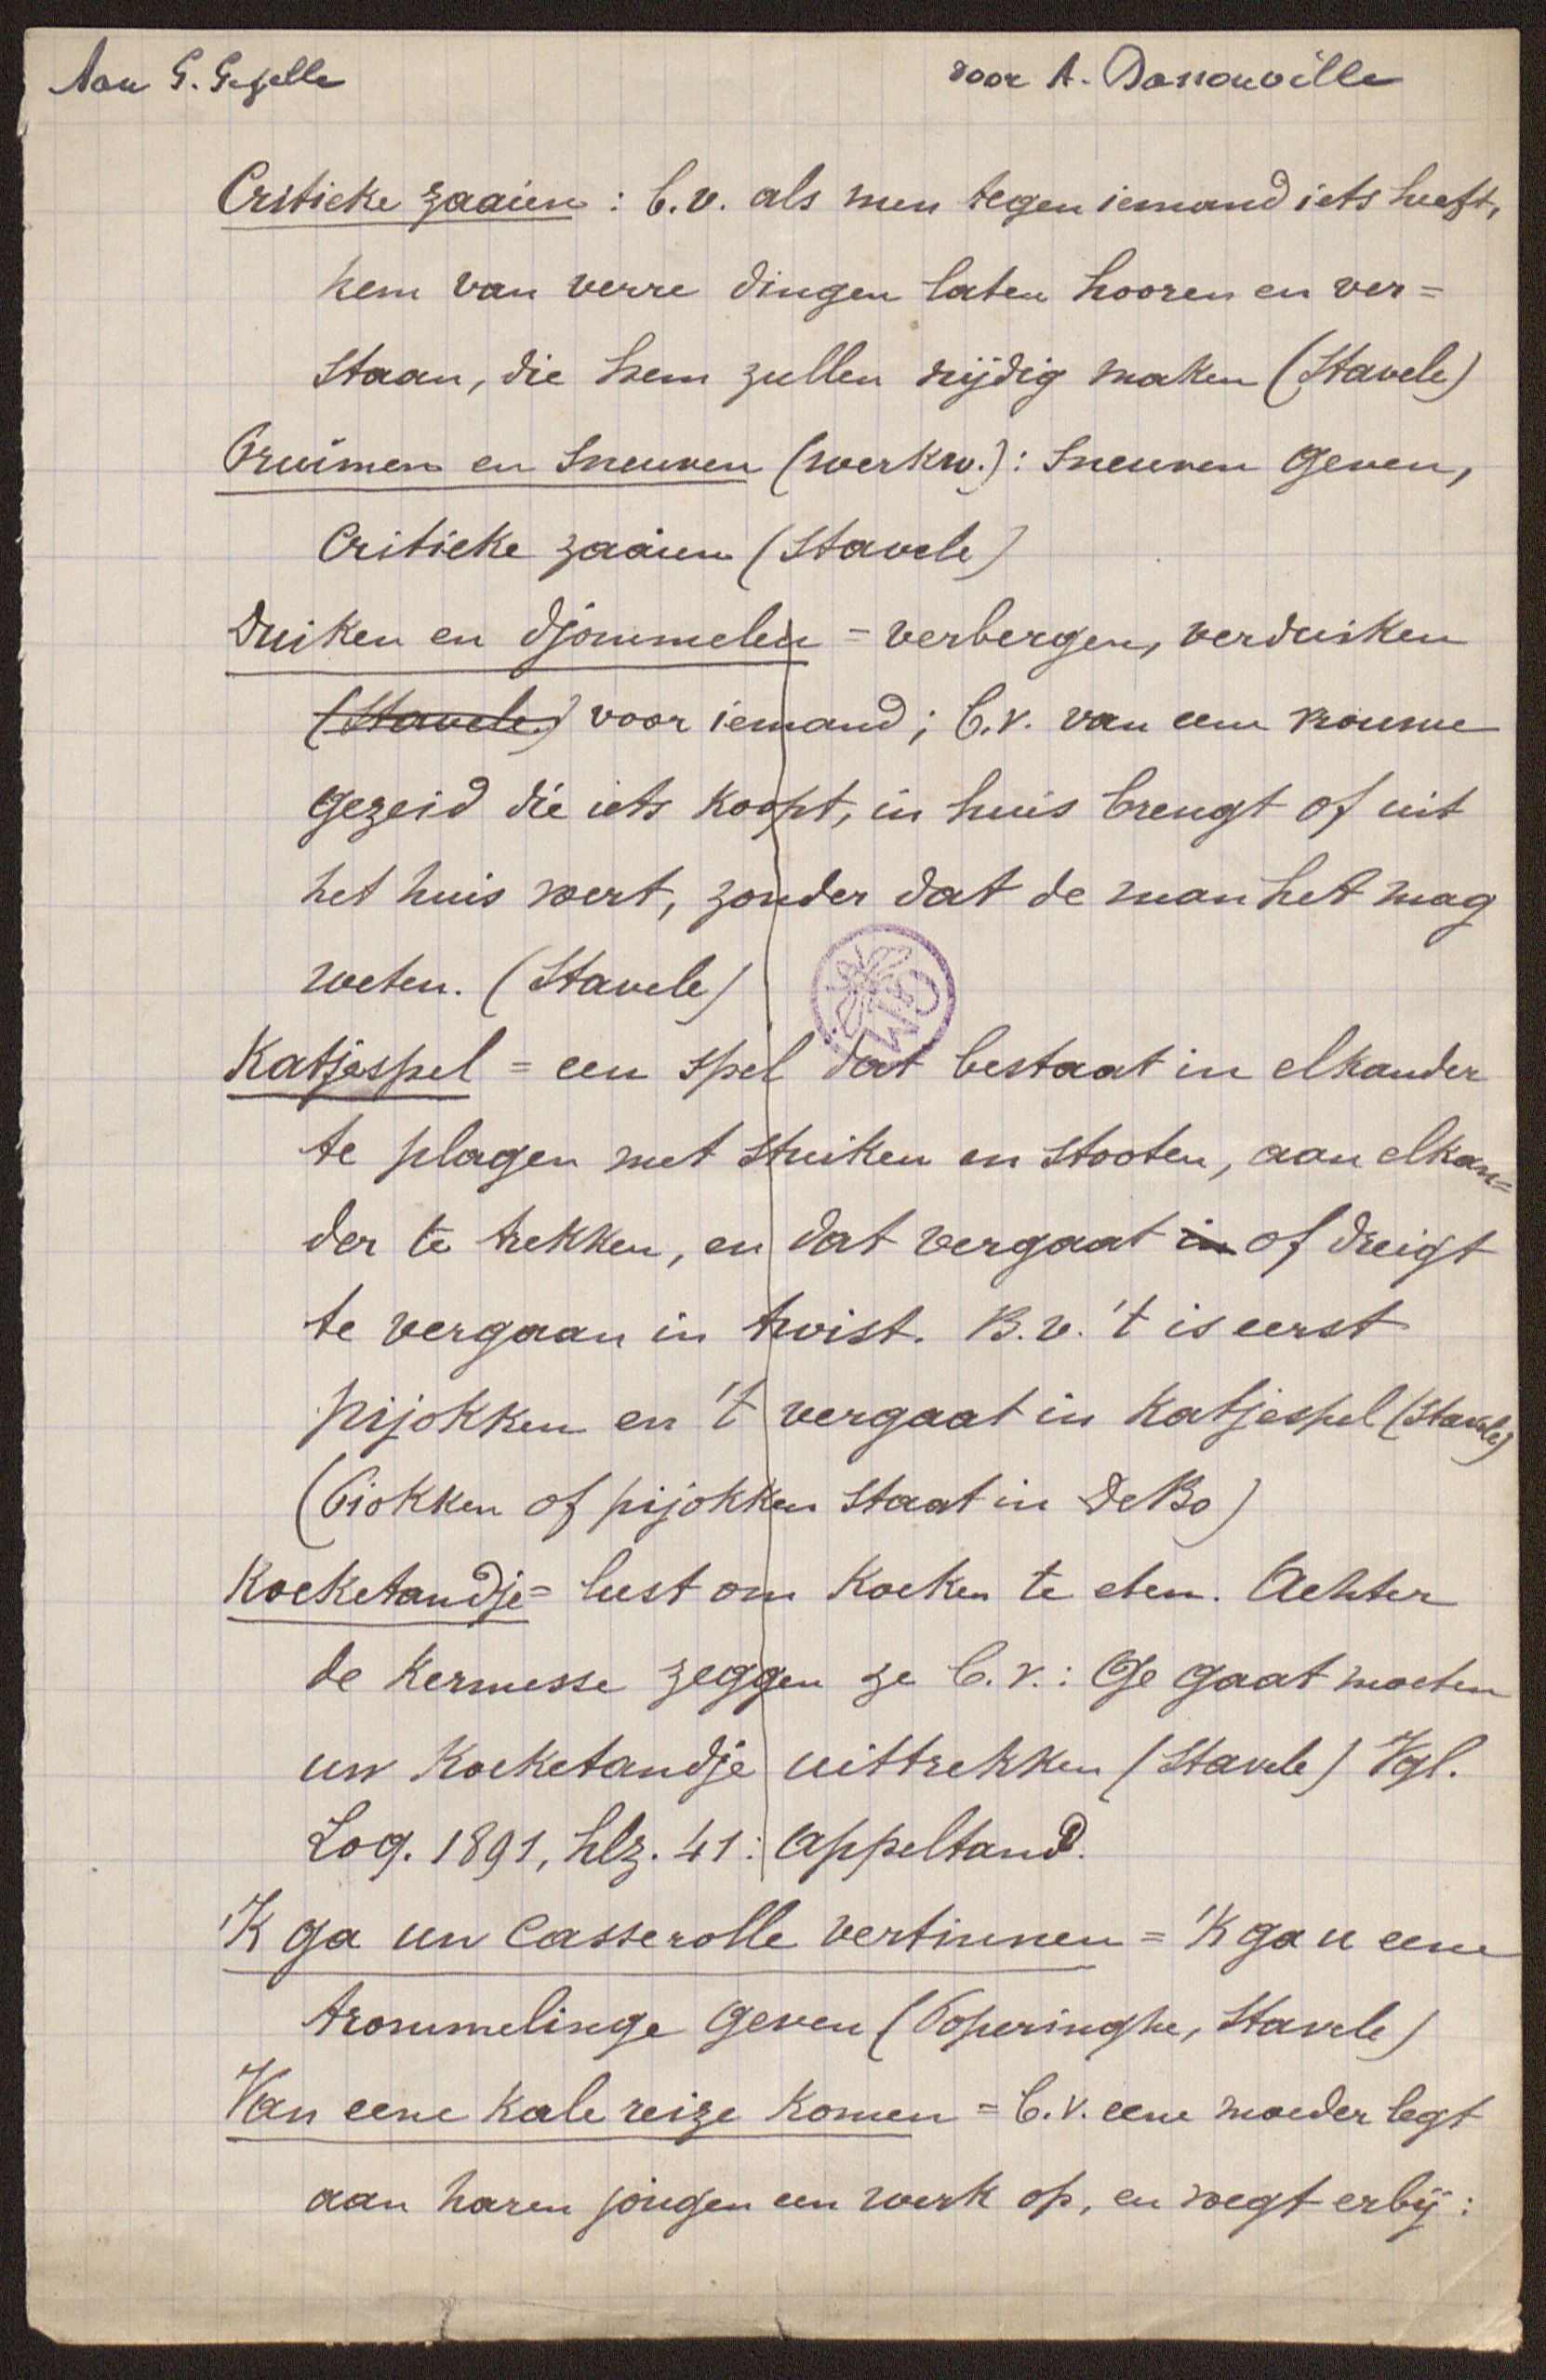 Aan G. Gezelle
door A. Dassonville
Critieke zaaien : b.v. als men tegen iemand iets heeft,
hem van verre dingen laten hooren en ver=
staan, die hem zullen nijdig maken (Stavele)
Pruimen en sneuven (werkw.) : sneuven geven,
critieke zaaien (Stavele)
Duiken en djommelen = verbergen, verduiken
(Stavele) voor iemand ; b.v. van eene vrouwe
gezeid die iets koopt, in huis brengt of uit
het huis weert, zonder dat de man het mag
weten. (Stavele)
Katjespel = een spel dat bestaat in elkander
te plagen met stuiken en stooten, aan elkan=
der te trekken, en dat vergaat in of dreigt
te vergaan in twist. B.v. 't is eerst
pijokken en 't vergaat in katjespel (Stavele)
(Piokken of pijokken staat in De Bo)
Koeketandje = lust om koeken te eten. Achter
de kermesse zeggen ze b.v. : Ge gaat moeten
uw koeketandje uittrekken (Stavele) Vgl.
Loq. 1891, blz. 41 : appeltand.
'K ga uw casserolle vertinnen = 'k ga u eene
trommelinge geven (Poperinghe, Stavele)
Van eene kale reize komen = b.v. eene moeder legt
aan haren jongen een werk op, en voegt erbij :
GM